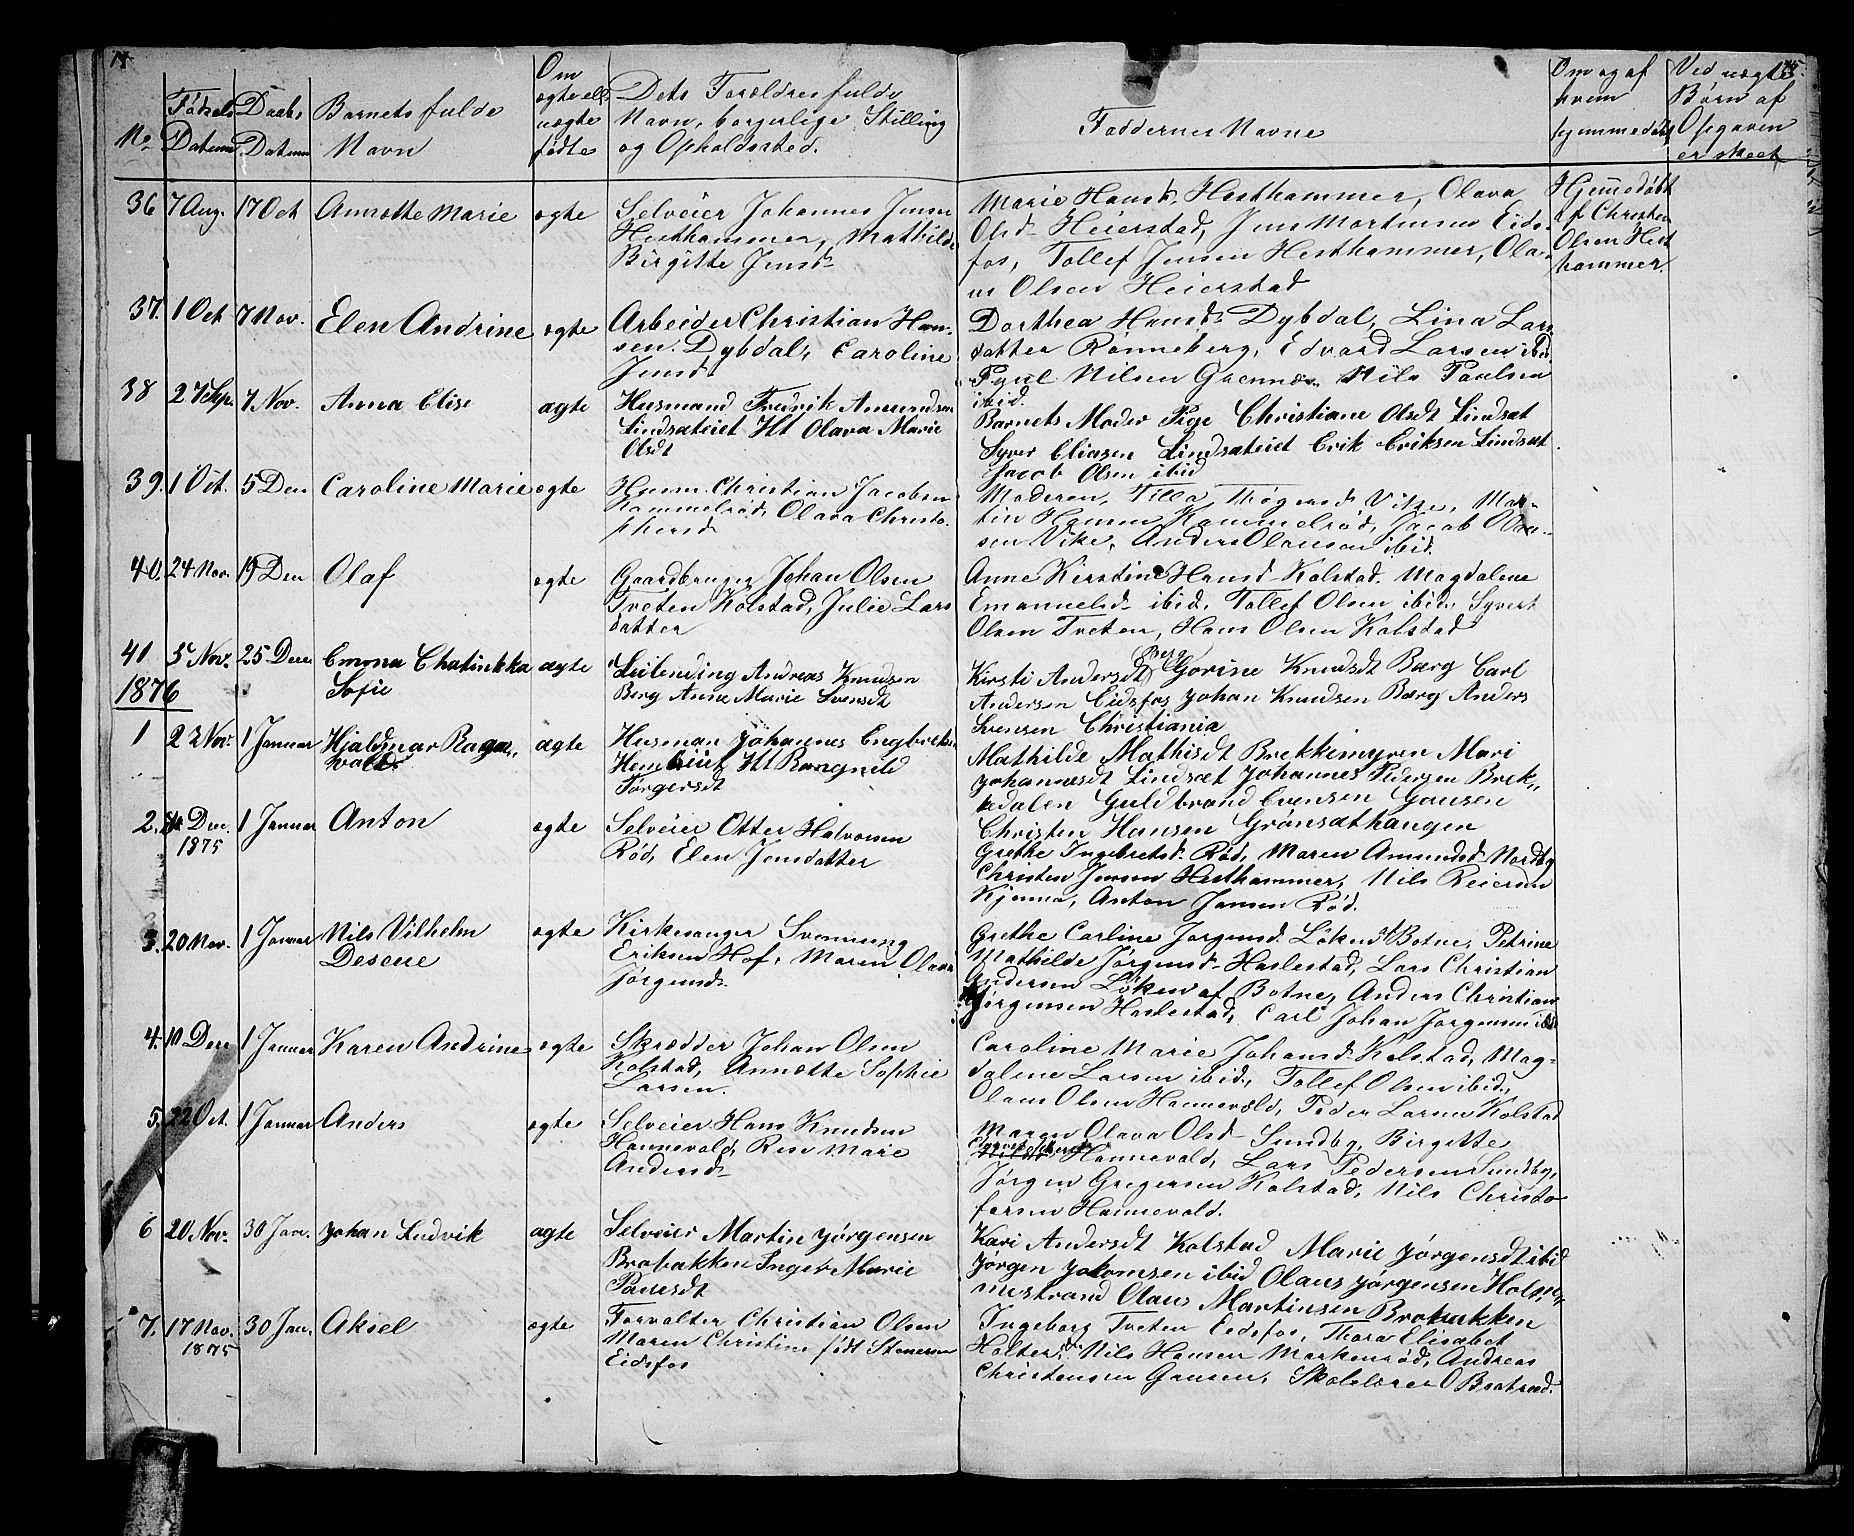 14
No
Fødsels Datum
Daabs Datum
Barnets fulde Navn
Om ægte ell. uægte fødte
Dets Forældres fulde
Navn, borgerlige Stilling
og Opholdssted.
Faddernes Navne
Om og af hvem hjemmedøbt
Ved uægte Børn af Opgaven er skeet
36 7 Aug. 17 Oct Annette Marie ægte Selveier Johannes Jensen
Hesthammer, Mathilde
Birgitte Jensd.
Marie Hansd. Hesthammer, Olava
Olsd. Heierstad, Jens Mortensen Eids-
fos, Tollef Jensen Hesthammer, Ola-
us Olsen Heierstad
Hjemedøbt
af Christen
Olsen Hest
hammer.
37. 1 Oct 7 Nov. Elen Andrine ægte Arbeider Christian Han-
sen Dybdal, Caroline
Jensd.
Dorthea Hansd. Dybdal, Lina Lars
datter Rønneberg, Edvard Larsen ibd.
Paul Nilsen Grennes Nils Paulsen
ibid.
38 27 Sep. 7 Nov. Anna Elise ægte Husmand Fredrik Amundsen
Lindsæteiet Ht Olava Marie
Olsdt
Barnets Moder Pige Christiane Olsdt Lindsæt
Syver Eliasen Lindsæteiet Erik Eriksen Lindsæt
Jacob Olsen ibid
39. 1 Oct. 5 Dec Caroline Marie ægte Husm. Christian Jacobsen
Kammelrød, Olava Christo-
phersd
Moderen, Tilla Thøgersd. Vike, Mar-
tin Hansen Kammelrød, Jacob Olau-
sen Vike, Anders Olausen ibid.
40. 24 Nov. 19 Dec Olaf ægte Gaardbruger Johan Olsen
Treten Kolstad, Julie Lars
datter
Anne Kirstine Hansd. Kolstad. Magdalene
Emanuelsd. ibid, Tollef Olsen ibid, Syvert
Olsen Treten, Hans Olsen Kolstad
41 5 Nov. 25 Dec. Emma Chatinkka ægte Leilending Andreas Knudsen
Sofie
Berg Anne Marie Svensdt
Kirsti Andersdt Berg Gorine Knudsdt Bærg Carl
Andersen Eidsfos Johan Knudsen Bærg Anders
Svensen Christiania
1876
1 22 Nov. 1 Januar Hjalmar Ragn„
vald
ægte Husman Johannes Engbretsen
Ht Rangnild
Torgersdt
Mathilde Mathisdt Brekkemyren Mari
Johannesdt Lindsæt Johannes Pedersen Brek„
kedalen Guldbrand Evensen Gausen
Christen Hansen Grønsæthaugen
2. Dec. 1875 1 Januar Anton ægte Selveier Otter Halvorsen
Rød, Elen Jensdatter
Grethe Ingebretsd. Rød, Maren Amundsd. Nordby
Christen Jensen Hesthammer, Nils Reiersen
Kjenna, Anton Jansen Rød.
3. 20 Nov. 1 Januar Nils Vilhelm
Desene
ægte Kirkesanger Svennung
Eriksen Hof, Maren Olava
Jørgensd.
Grethe Carline Jørgensd. Løken af Botne, Petrine
Mathilde Jørgensd. Haslestad, Lars Christian
Andersen Løken af Botne, Anders Christian
Jørgensen Haslestad, Carl Johan Jørgensen ibd
4. 10 Dec 1 Januar Karen Andrine ægte Skrædder Johan Olsen
Kolstad, Annette Sophie
Larsen.
Caroline Marie Johansd. Kolstad, Mag-
dalene Larsen ibid, Tollef Olsen ibid.,
Olaus Olsen Hannevold, Peder Larsen Kolstad
5. 22 Oct. 1 Januar Anders ægte Selveier Hans Knudsen
Hannevold, Rese Marie
Andersd.
Maren Olava Olsd. Sundby, Birgitte
Hannevold, Lars Pedersen Sundby,
Jørgen Gregersen Kolstad, Nils Christo
fersen Hannevold.
6 20 Nov. 30 Jan. Johan Ludvik ægte Selveier Martin Jørgensen
Brobakken Inger Marie
Paulsdt
Kari Andersdt Kolstad Marie Jørgensdt ibid
Jørgen Jokomsen ibid Olaus Jørgensen Holm„
nestrand Olaus Martinsen Brobakken
7. 17 Nov. 1875 30 Jan. Aksel ægte Forvalter Christian Olsen
Maren Christine født Stenersen
Eidsfos
Ingeborg Treten Eidsfos, Thora Elisabet
Holter, Nils Hansen Markerød, Andreas
Christensen Gausen, Skolelærer O Baatrud.